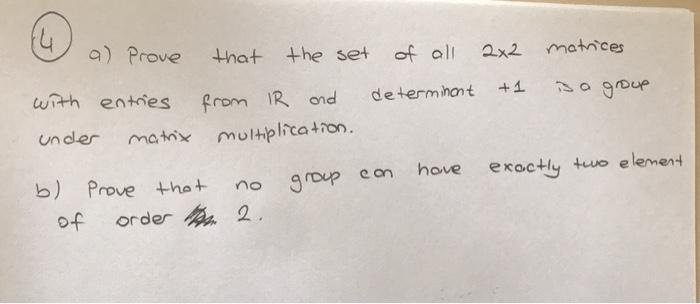 4
a) Prove that the set of all 2x2 matrices
with entries from IR and determinant +1 is a group
under matrix multiplication.
b) Prove that no group can have exactly two element
of order 2.